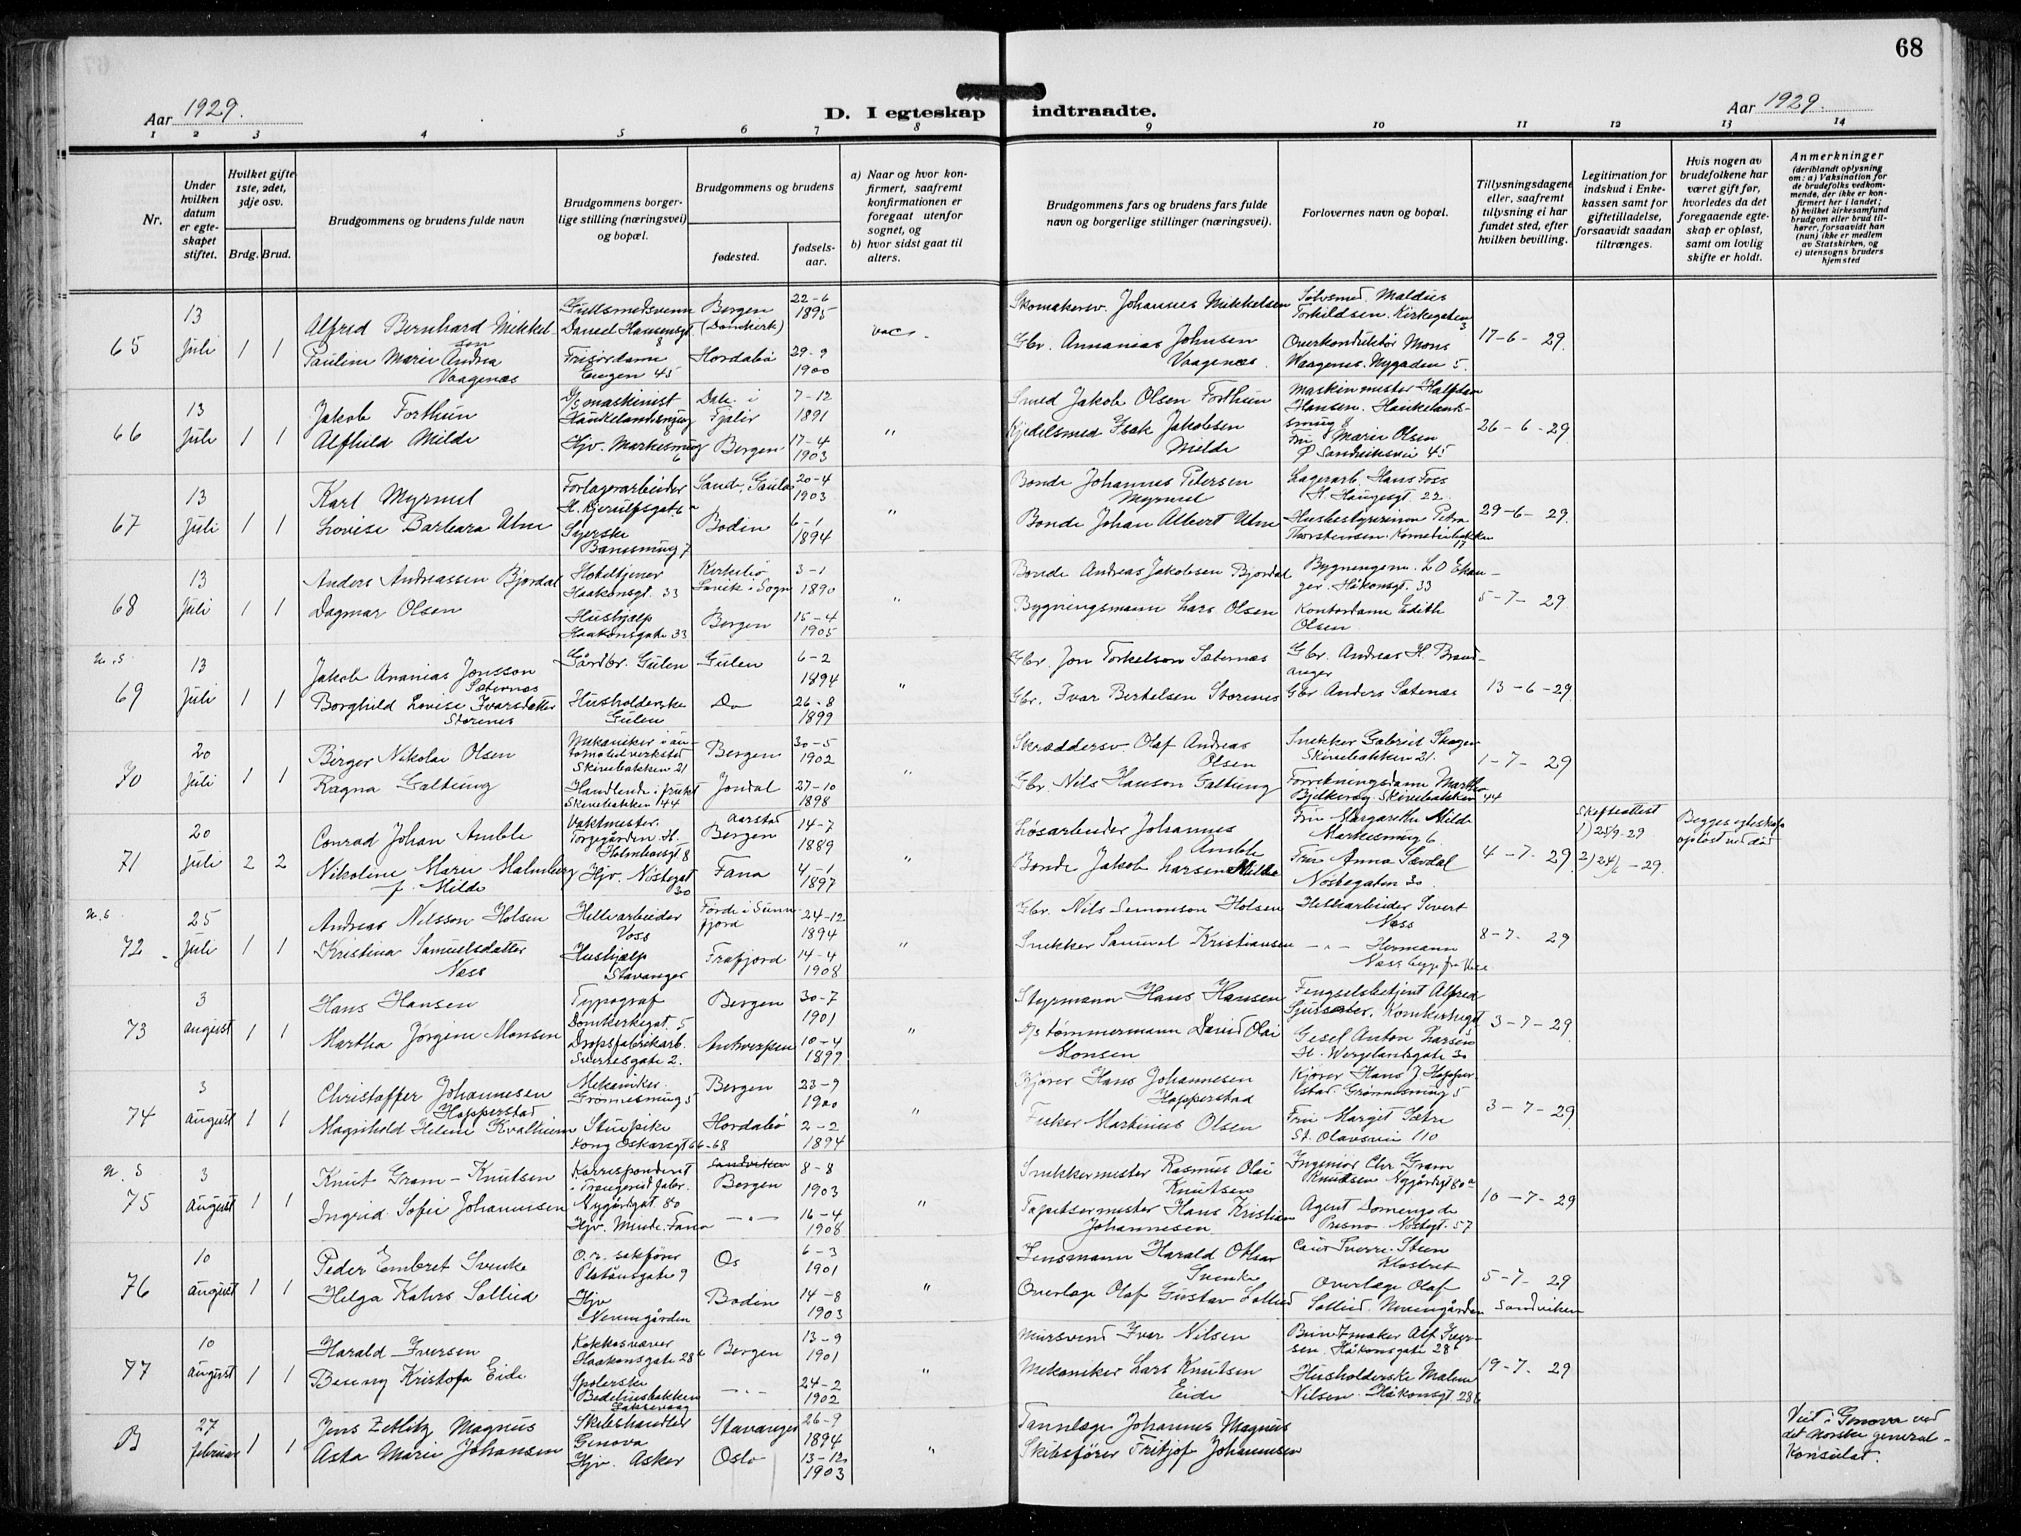 68
Aar 1929.
D. I egteskap indtraadte.
Aar 1929.
1 2 3 4 5 6 7 8 9 10 11 12 13 14
Nr.
Under hvilken datum er egteskapet stiftet.
Hvilket gifte 1ste, 2det, 3dje osv.
Brdg. Brud.
Brudgommens og brudens fulde navn
Brudgommens borgerlige stilling (næringsvei) og bopæl.
Brudgommens og brudens
fødested.
fødselsaar.
a) Naar og hvor konfirmert, saafremt konfirmationen er foregaat utenfor sognet, og
b) hvor sidst gaat til alters.
Brudgommens fars og brudens fars fulde navn og borgerlige stillinger (næringsvei).
Forlovernes navn og bopæl.
Tillysningsdagene eller, saafremt tillysning ei har fundet sted, efter hvilken bevilling.
Legitimation for indskud i Enkekassen samt for giftetilladelse, forsaavidt saadan tiltrænges.
Hvis nogen av brudefolkene har været gift før, hvorledes da det foregaaende egteskap er opløst, samt om lovlig skifte er holdt.
Anmerkninger
(deriblandt oplysning om: a) Vaksination for de brudefolks vedkommende, der ikke er konfirmert her i landet; b) hvilket kirkesamfund brudgom eller brud tilhører, forsaavidt han (hun) ikke er medlem av Statskirken, og c) utensogns bruders hjemsted
65 13 Juli 1 1
Alfred Bernhard Mikkelsen
Paulem Marie Andrea Vaagenæs
Gullsmedsvenn Daniel Hansensgt 8
Frisørdame Engen 45
Bergen (Domkirk) 22-6 1895
Hordabø 29-9 1900
vac.
Skomakersv. Johannes Mikkelsen
Gbr. Annanias Johnsen Vaagenæs.
Sølvsmed. Maldius Torkildsen. Kirkegaten 3
Overkonduktør Mons Waagenes. Nygaden 5.
17-6-29.
66 13 Juli 1 1
Jakob Forthun
Alfhild Milde
D/S maskinist Haukelandsmug 8
Hjv. Markesmug 6
Dale i Fjaler 7-12 1891
Bergen 17-4 1903
"
Smed Jakob Olsen Forthun
Kjedelsmed Isak Jakobsen Milde
Maskinmester Halfdan Hansen. Haukelandsmug 8
Fru Marie Olsen Ø Sandviksvei 45
26-6-29
67 13 Juli 1 1
Karl Myrmel
Lovise Barbara Utne
Forlagerarbeider H. Kjerulfsgat 6a
Syerske Banesmug 7
Sande, Gaular 20-4 1903
Bodin 6-1 1894
"
Bonde Johannes Petersen Myrmel
Bonde Johan Albert Utne
Lagerarb. Hans Foss H. Haugesgt. 22.
Husbestyrerinne Petra Thorstensen. Komediebakken 17
29-6-29.
68 13 Juli 1 1
Anders Andreassen Bjordal
Dagmar Olsen
Hotelltjener Haakonsgt. 33
Hushjælp Haakonsgate 33
Kirkebø Lavik i Sogn 3-1 1890
Bergen 15-4 1905
"
Bonde Andreas Jakobsen Bjordal
Bygningsmann Lars Olsen
Håkonsgt. 33
Kontordame Edith Olsen
5-7-29
N. 5
69 13 Juli 1 1
Jakob Ananias Jonsson Sæternæs
Borghild Lovise Ivarsdatter Storenes
Gårdbr. Gulen
Husholderske Gulen
Gulen 6-2 1894
Do 26-8 1899
"
Gbr. Jon Torkelson Sæternæs
Gbr. Ivar Bertelsen Storenes
Gbr. Andreas H. Brandanger
Gbr Anders Sætenæs
13-6-29
70 20 Juli 1 1
Birger Nikolai Olsen
Ragna Galtung
Mekaniker i automobilverksted Skivebakken 21
Handlende i frukt Skivebakken 44
Bergen 30-5 1902
Jondal 27-10 1898
"
Skræddersv. Olaf Andreas Olsen
Gbr. Nils Hanson Galtung
Snekker Gabriel Skagen Skivebakken 21.
Forretningsdame Martha Bjelkerøy. Skivebakken 44
1-7-29
71 20 Juli 2 2
Conrad Johan Amble
Nikoline Marie Malmberg f. Milde
Vaktmester. Torggården. H. Holmboesgt 8
Hjv. Nøstegt 30
Aarstad Bergen 14-7 1889
Fana 4-1 1897
"
Løsarbeider Johannes Amble
Bonde Jakob Larsen Milde
Fru Margarethe Milde Markesmug 6.
Fru Anna Sævdal Nøstegaten 30.
4-7-29
Skifteattest
1) 25/9.29.
2) 24/6-29.
Begges egteskap opløst ved død
N. 6
72 25 Juli 1 1
Andreas Nilsson Holsen
Kristina Samuelsdatter Næss
Hellearbeider Voss
Hushjælp Stavanger
Førde i Sunnfjord 24-12 1894
Frafjord 14-4 1908
"
Gbr. Nils Semonson Holsen
Snekker Samuel Kristiansen
Hellearbeider Sivert Næss
-"- Hermann Næss begge fra Voss
8-7-29
73 3 august 1 1
Hans Hansen
Martha Jørgine Monsen
Typograf Domkirkegt. 5
Dropsfabrikarb. Sverresgate 2.
Bergen 30-7 1901
Antwerpen 10-4 1899
"
Styrmann Hans Hansen
D/S tømmermann David Olai Monsen
Fengselsbetjent Alfred Domkirkegt 5
Gesel Anton Larsen H. Wergelandsgate 30
3-7-29
74 3 august 1 1
Christoffer Johannesen Hopperstad
Magnhild Helene Kvalheim
Mekaniker. Grønnesmug 5
Stuepike Kong Oskarsgt 66-68
Bergen 23-9 1900
Hordabø 2-2 1894
"
Kjører Hans Johannesen Hopperstad
Fisker Martinus Olsen
Kjører Hans J Hopperstad. Grønnesmug 5
Fru Margit Sætre St. Olavsvei 110
3-7-29
N. 5
75 3 august 1 1
Knut Gram-Knutsen
Ingrid Sofie Johannesen
Korrespondent Nygårdsgt 80
Hjv. Minde. Fana
Sandviken Bergen 8-8 1903
-"- 16-4 1908
"
Snekkermester Rasmus Olai Knutsen
Tapetsermester Hans Kristian Johannesen
Ingeniør Chr. Gram Knutsen Nygårdsgt 80a
Agent Domengo de Presno. Nøstegt. 57
10-7-29
76 10 august 1 1
Peder Embret Svenke
Helga Kahrs Sollied
O.r. sakfører Platånsgate 9
Hjv Nevengården
Os 6-3 1901
Bodin 14-8 1903
"
Lensmann Harald Olsen Svenke
Overlæge Olaf Gustav Sollied
Caud Sverre. Steen Klostret
Overlæge Olaf Sollied. Nevengården Sandviken
5-7-29
77 10 august 1 1
Harald Iversen
Benny Kristofa Eide
Kokkesværer Haakonsgate 28b
Spolerske Bedehusbakken Laksevaag
Bergen 13-9 1901
-"- 24-2 1902
"
Mursvend Ivar Nilsen
Mekaniker Lars Knutsen Eide
Buntmaker Alf Iversen. Håkonsgate 28b
Husholderske Malene Nilsen. Håkonsgt. 28b
19-7-29
B 27 februar 1 1
Jens Zetlitz Magnus
Asta Marie Johansen
Skibshandler Genova
Hjv. Asker
Stavanger 26-9 1894
Oslo 13-12 1903
"
Tannlæge Johannes Magnus
Skibsfører Fritjof Johannesen
Viet i Genova ved det norske general-Konsulat.